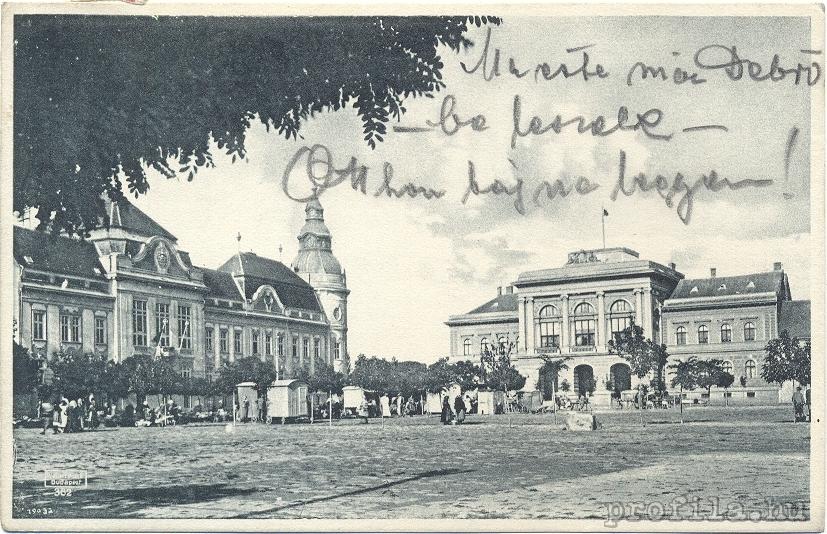 Ma este már Debrő
– be leszek –
Otthon baj ne legyen!
Budapest
362
19032
profila.hu